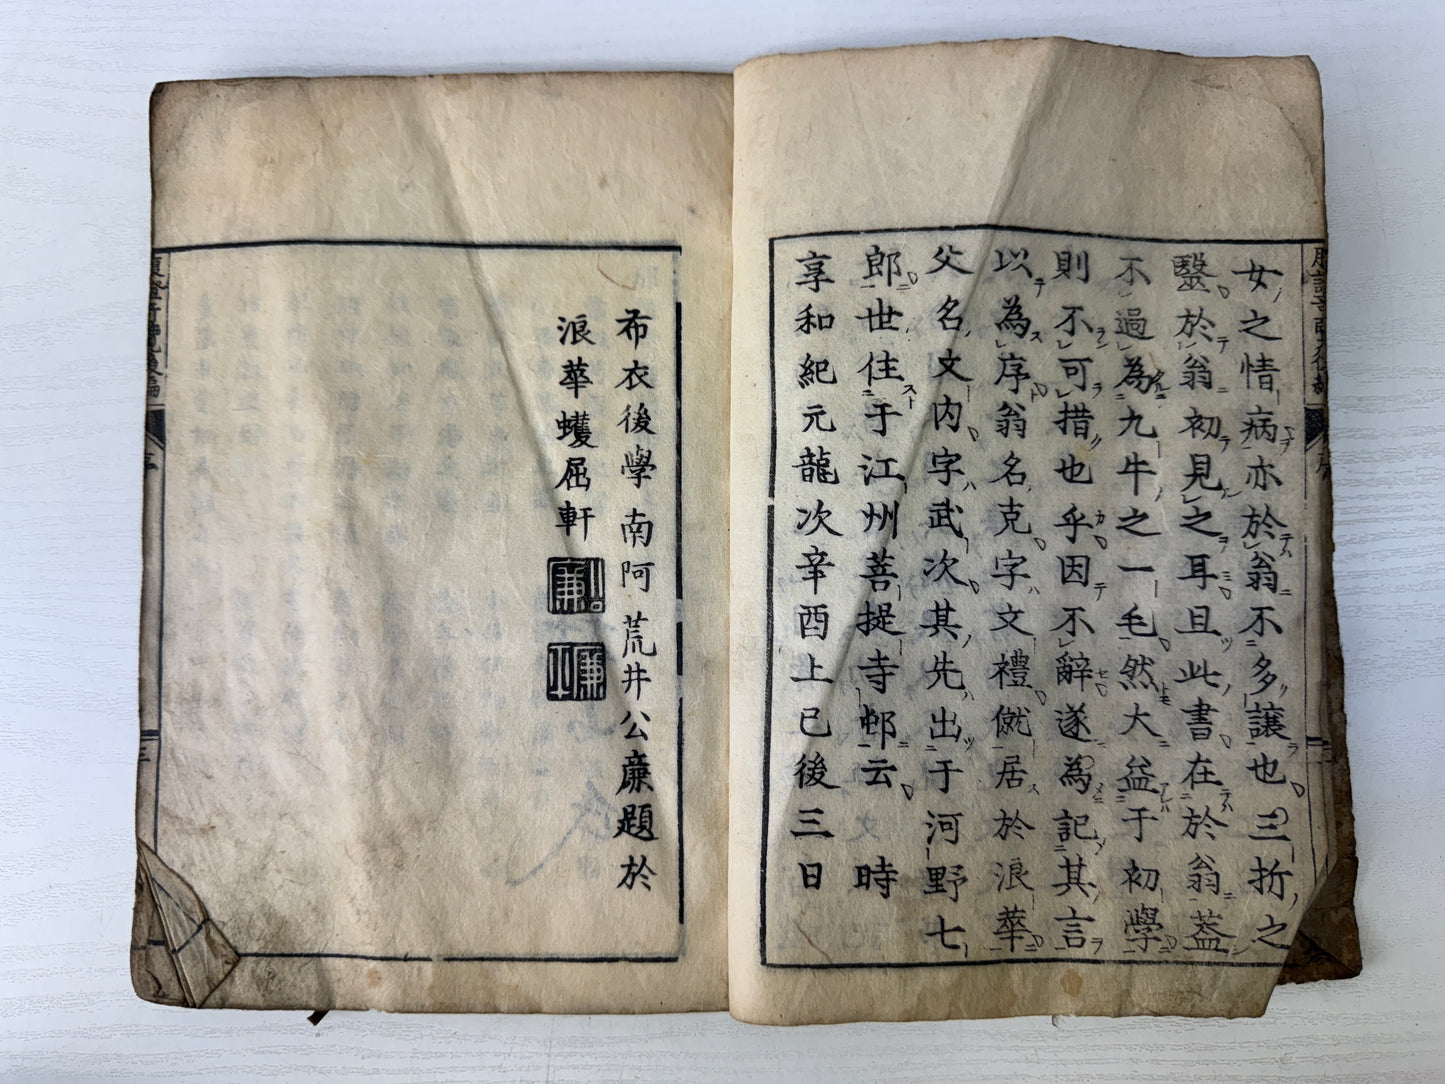 女之情病亦於翁不多譲也三折之
醫於翁初見之耳且此書在於翁葢
不過為九牛之一毛然大益于初學
則不可措也乎因不辭遂為記其言
以為序翁名克字文禮僦居於浪華
父名文内字武次其先出于河野七
郎世住于江州菩提寺邨云時
享和紀元龍次辛酉上巳後三日
布衣後學南阿荒井公廉題於
浪華蠖屈軒